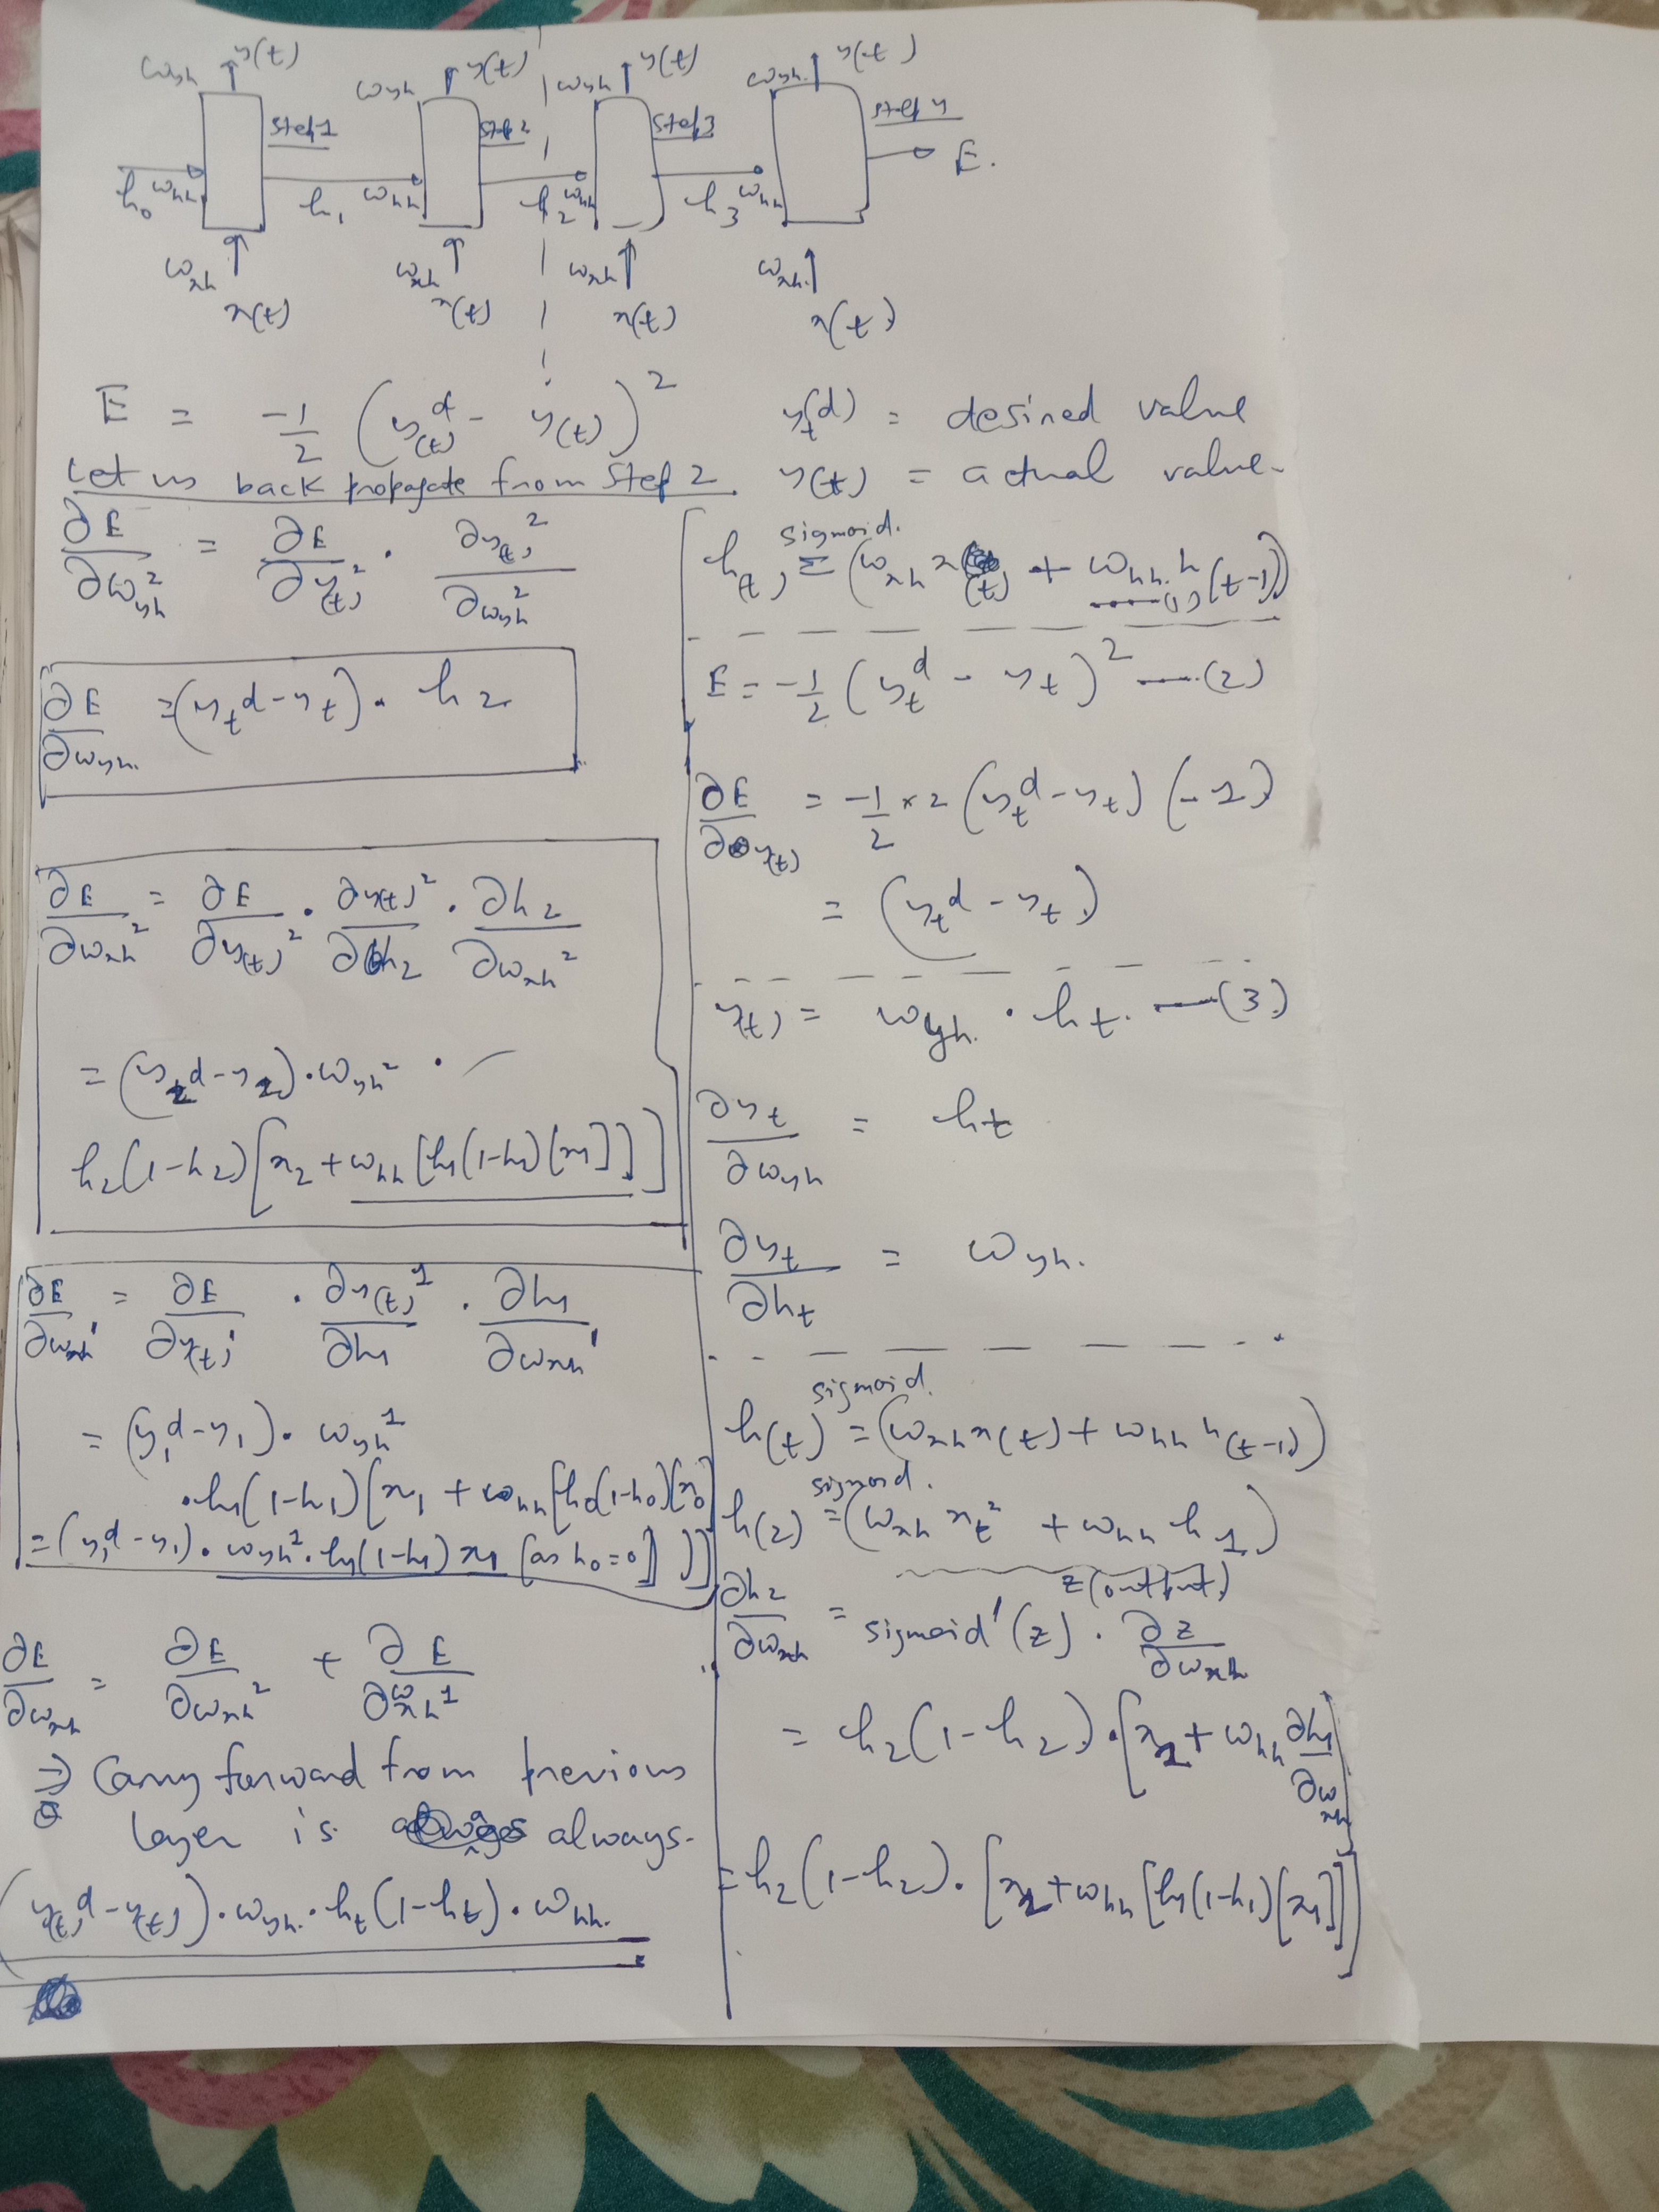 ω_yh y(t) ω_yh y(t) ω_yh y(t) ω_yh. y(t)
Step 1 Step 2 Step 3 Step 4
h₀ ω_hh h₁ ω_hh h₂ ω_hh h₃ ω_hh E.
ω_xh ω_xh ω_xh ω_xh.
x(t) x(t) x(t) x(t)
E = -1/2 (y_(t)^d - y(t))²
y_t^(d) = desired value
y(t) = actual value.
Let us back propagate from Step 2.
∂E/∂ω_yh² = ∂E/∂y_(t)² · ∂y_(t)²/∂ω_yh²
∂E/∂ω_yh. = (y_t^d - y_t) · h₂
∂E/∂ω_xh² = ∂E/∂y_(t)² · ∂y(t)²/∂h₂ · ∂h₂/∂ω_xh²
= (y₂^d - y₂) · ω_yh² ·
h₂(1-h₂)[x₂ + ω_hh[h₁(1-h₁)[x₁]]]
∂E/∂ω_xh¹ = ∂E/∂y_(t)¹ · ∂y_(t)¹/∂h₁ · ∂h₁/∂ω_xh¹
= (y₁^d - y₁) · ω_yh¹
· h₁(1-h₁)[x₁ + ω_hh[h₀(1-h₀)[x₀
= (y₁^d - y₁) · ω_yh² · h₁(1-h₁) x₁ [as h₀=0] ]]]
∂E/∂ω_xh = ∂E/∂ω_xh² + ∂E/∂ω_xh¹
⇒ Carry forward from previous
layer is always.
(y_(t)^d - y_(t)) · ω_yh. · h_t(1-h_t) · ω_hh.
h_(t) = sigmoid. (ω_xh x_(t) + ω_hh. h_(t-1)) ----(1)
E = -1/2 (y_t^d - y_t)² ----(2)
∂E/∂y_(t) = -1/2 × 2 (y_t^d - y_t) (-1)
= (y_t^d - y_t)
y_(t) = ω_yh. · h_t. ----(3)
∂y_t/∂ω_yh = h_t
∂y_t/∂h_t = ω_yh.
h(t) = sigmoid. (ω_xh x(t) + ω_hh h_(t-1))
h(2) = sigmoid. (ω_xh x_t² + ω_hh h₁)
z (output)
∂h₂/∂ω_xh = sigmoid'(z) · ∂z/∂ω_xh
= h₂(1-h₂) · [x₂ + ω_hh ∂h₁/∂ω_xh]
= h₂(1-h₂) · [x₂ + ω_hh[h₁(1-h₁)[x₁]]]